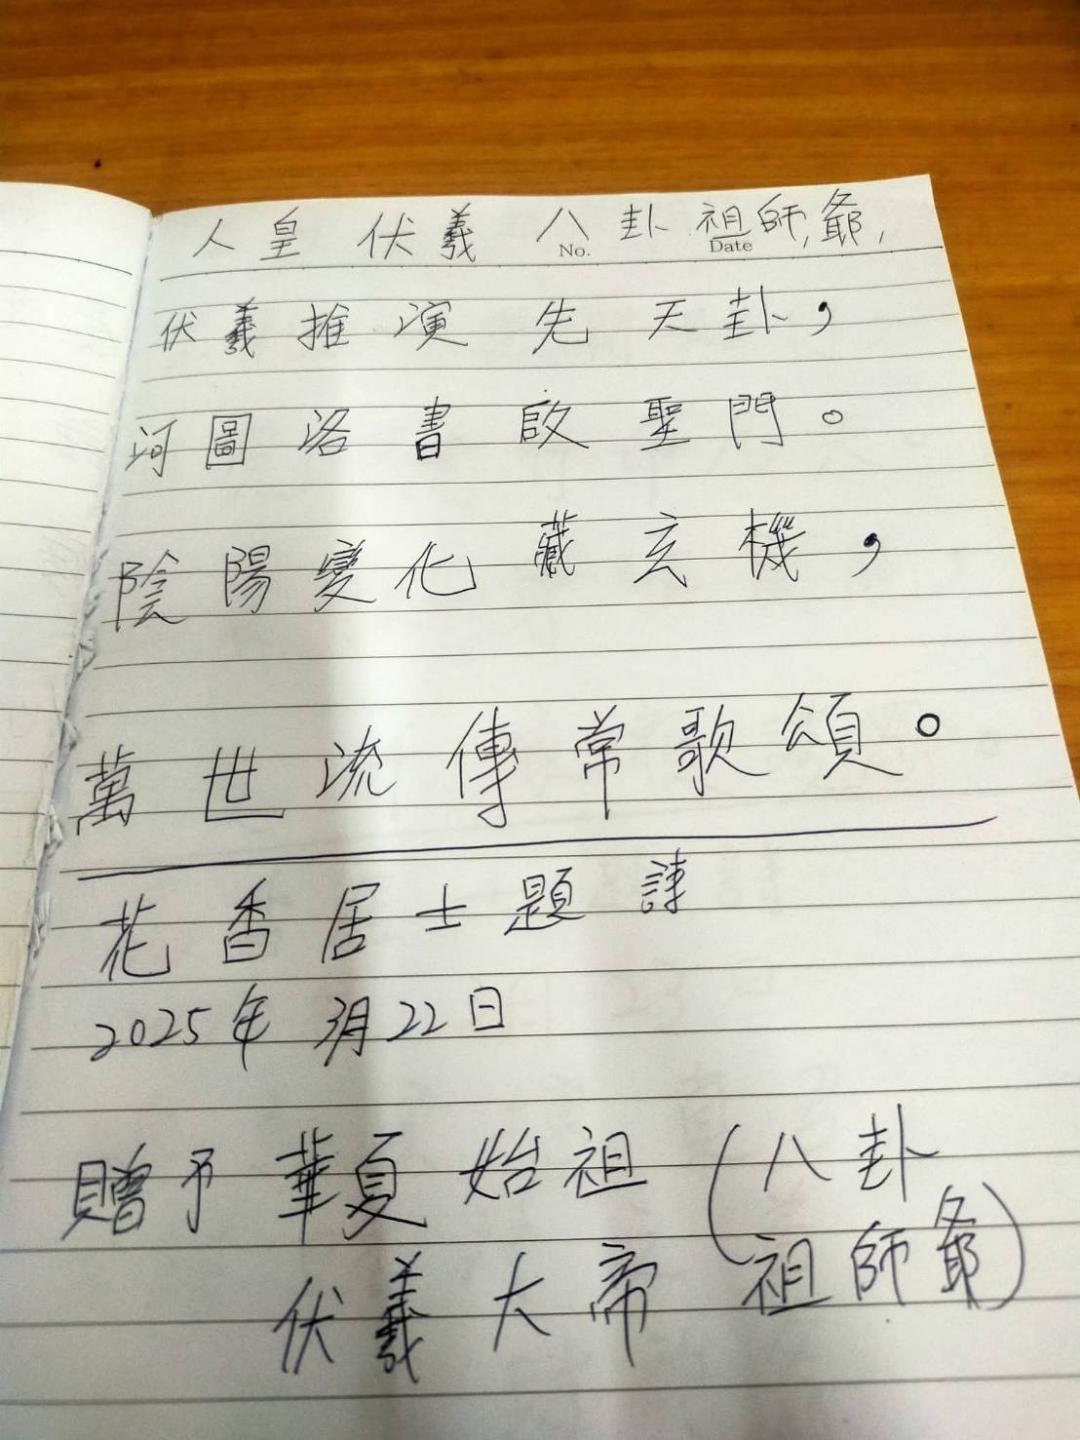 人皇 伏羲 八卦祖師爺,
No.
Date
伏羲推演先天卦,
河圖洛書啟聖門。
陰陽變化藏玄機,
萬世流傳常歌頌。
花香居士題詩
2025年3月22日
贈予華夏始祖(八卦
伏羲大帝 祖師爺)